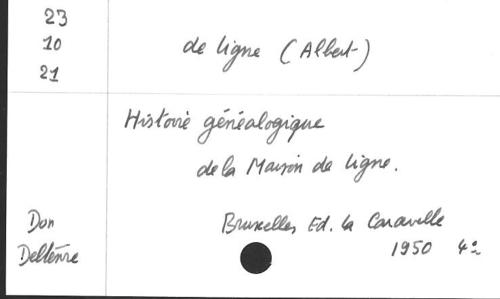 23
10
21
de Ligne (Albert)
Histoire généalogique
de la Maison de Ligne.
Don
Deltenre
Bruxelles Ed. la Caravelle
1950 4º